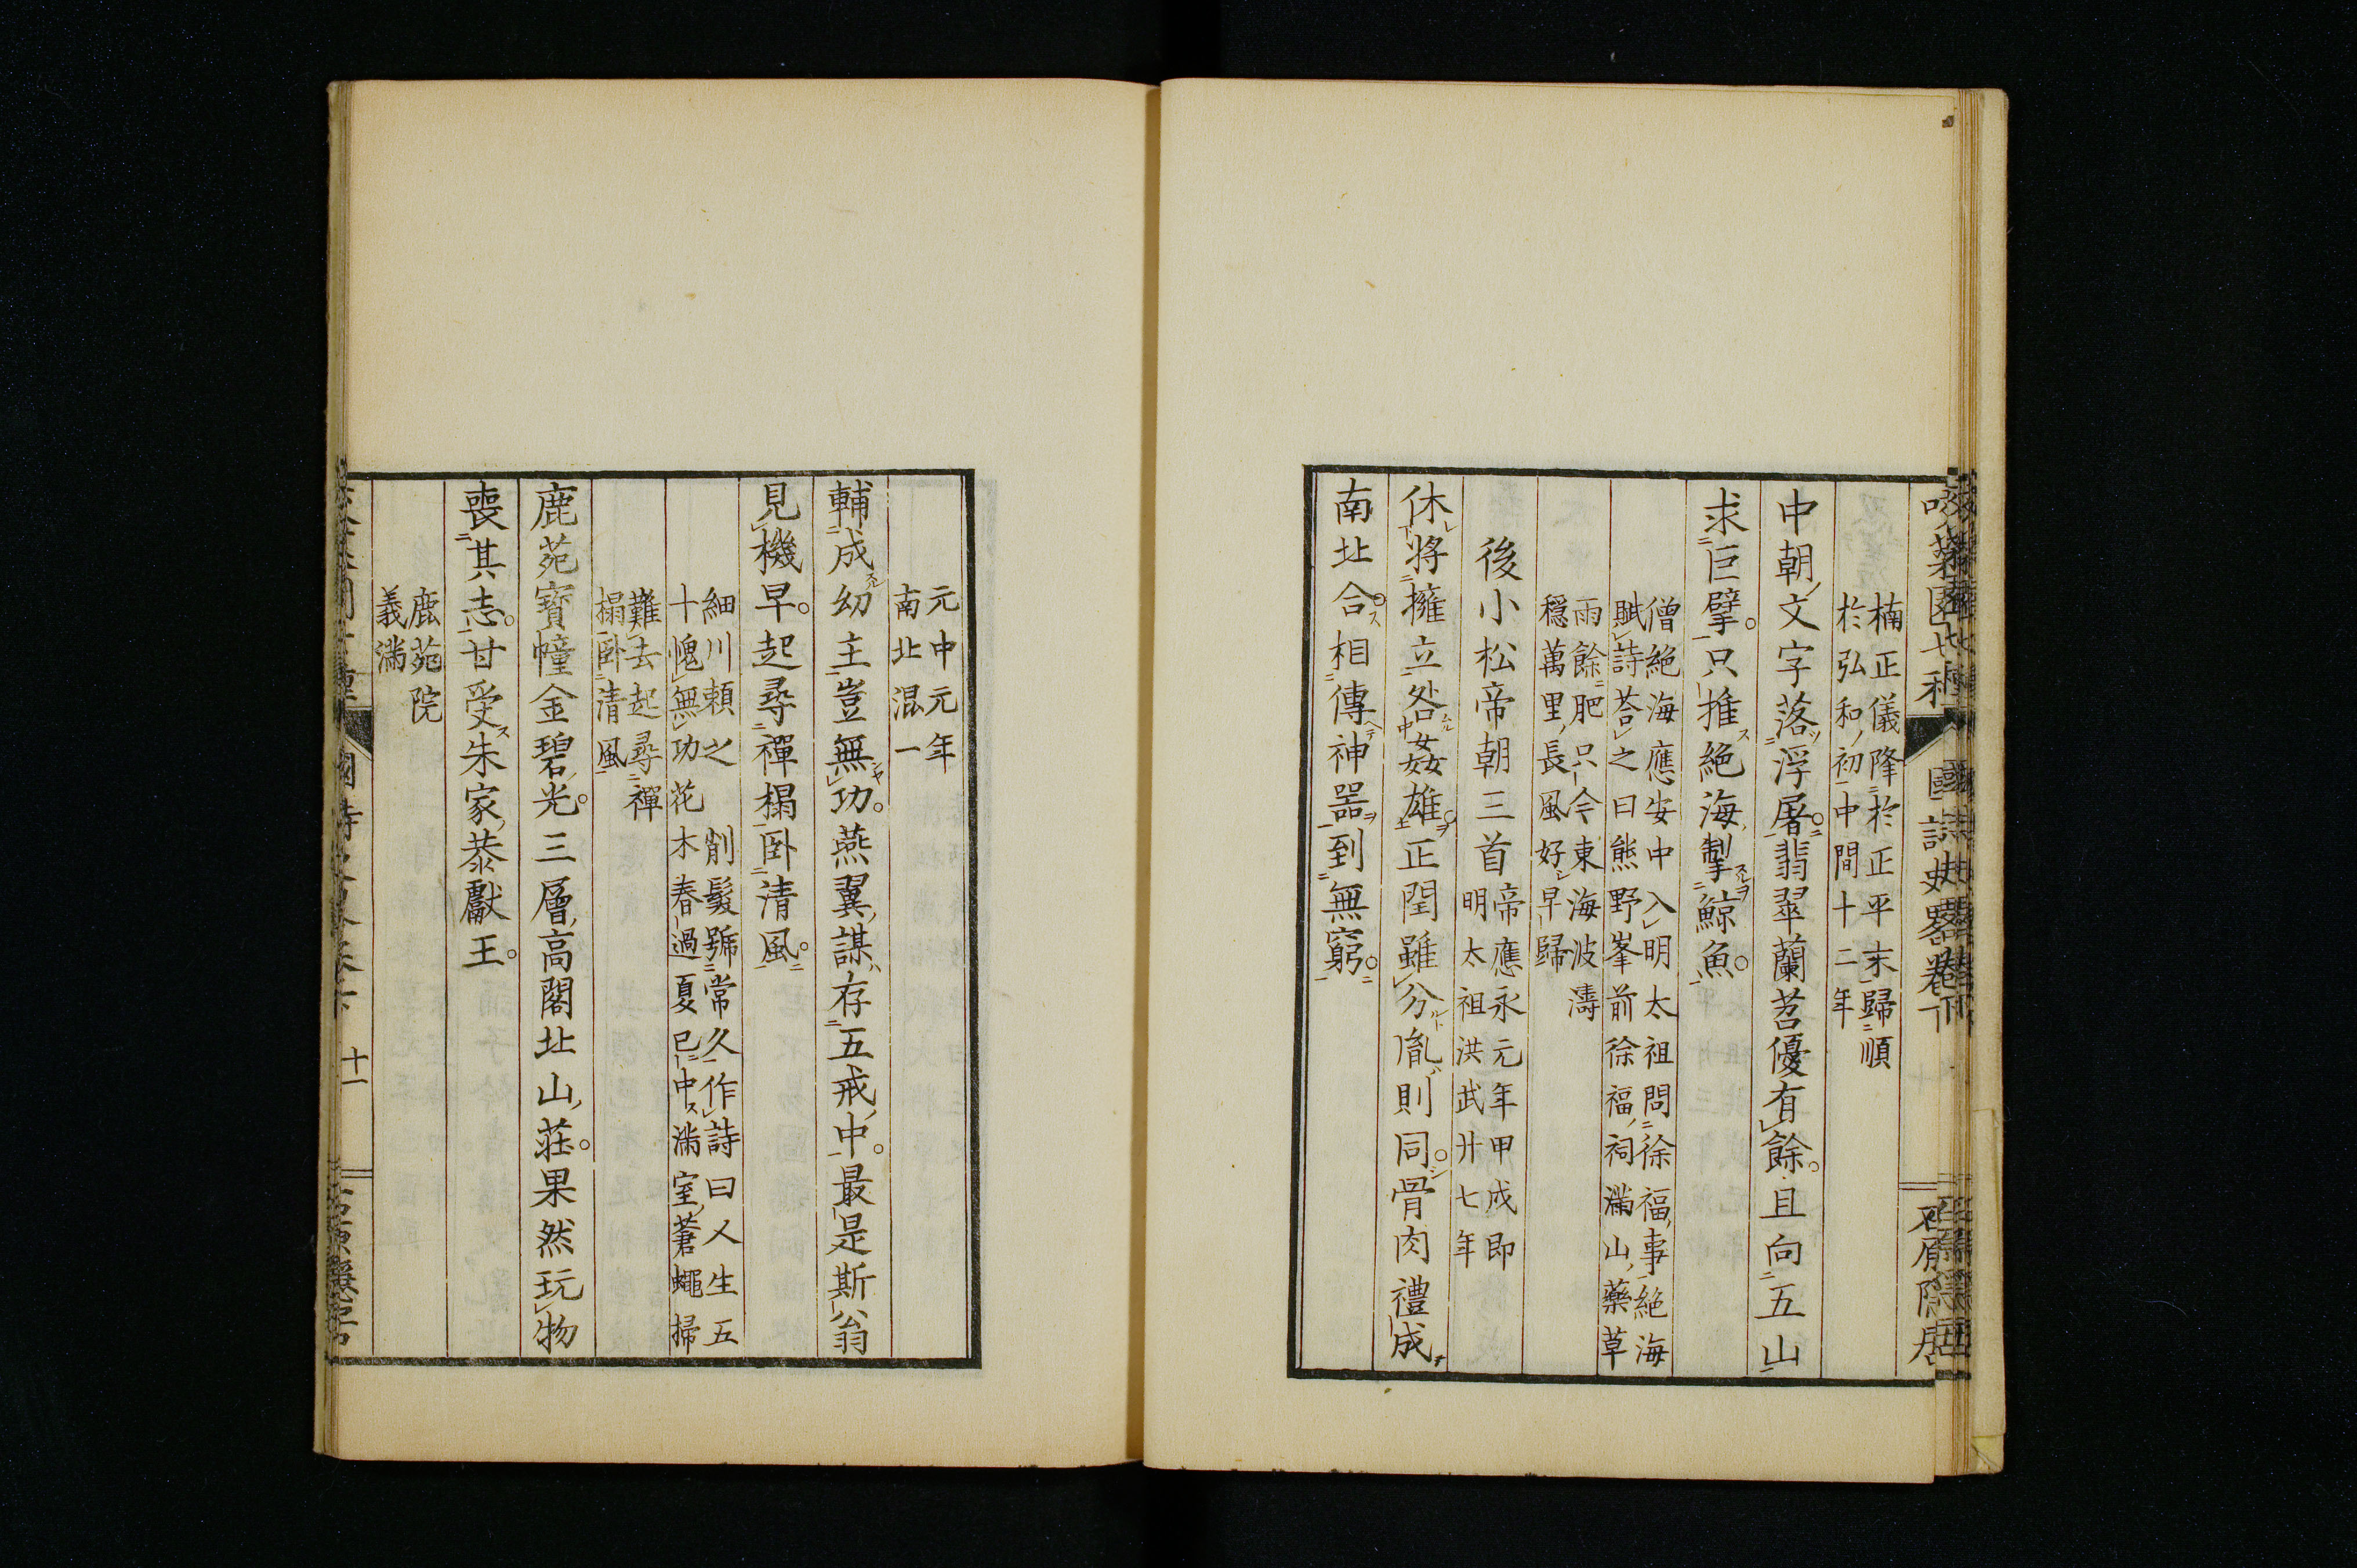 國詩史畧卷下
楠正儀降於正平末歸順
於弘和初中間十二年
中朝文字落浮屠翡翠蘭苕優有餘且向五山
求巨擘只推絶海掣鯨魚
僧絶海應安中入明太祖問徐福事絶海
賦詩荅之曰熊野峯前徐福祠滿山藥草
雨餘肥只今東海波濤
穩萬里長風好早歸
後小松帝朝三首
帝應永元年甲戌即
明太祖洪武廿七年
休將擁立咎姦雄正閏雖分胤則同骨肉禮成
南北合相傳神器到無窮
元中元年
南北混一
輔成幼主豈無功燕翼謀存五戒中最是斯翁
見機早起尋禪榻臥清風
細川頼之削髮號常久作詩曰人生五
十愧無功花木春過夏已中滿室蒼蠅掃
難去起尋禪
榻卧清風
鹿苑寳幢金碧光三層高閣北山莊果然玩物
喪其志甘受朱家恭獻王
鹿苑院
義滿
十一